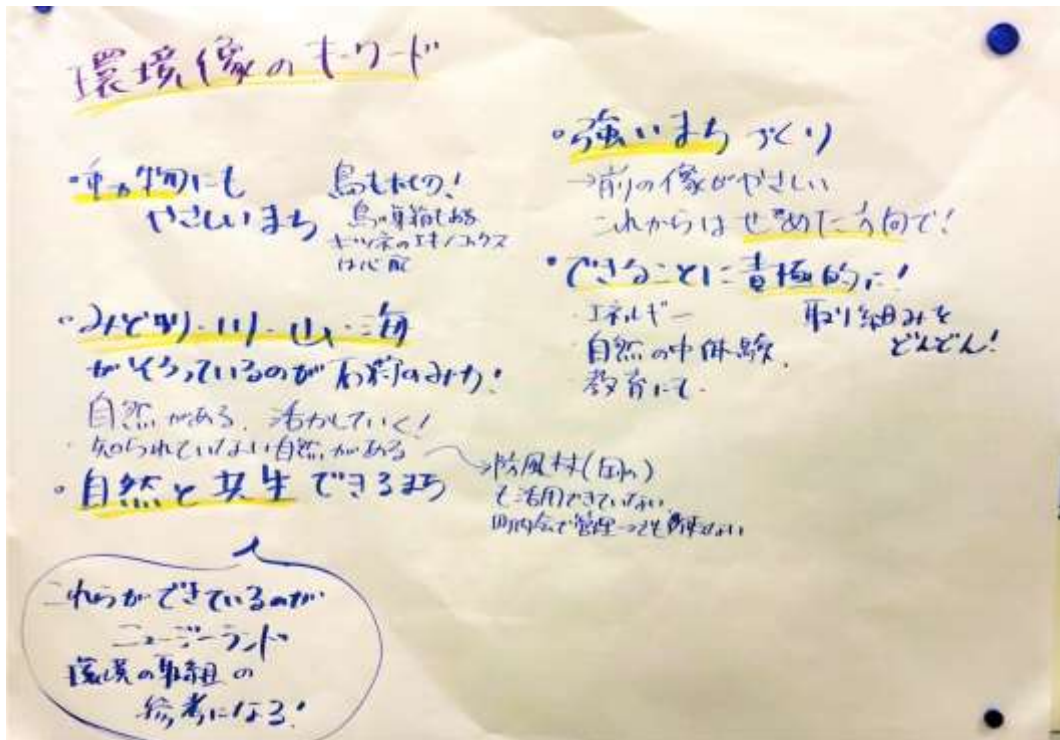 環境像のキーワード
・動物にも
やさしいまち
鳥もたくさん!
鳥の巣箱もある
キツネのエキノコックス
は心配
・みどり・川・山・海
がそろっているのが石狩のみ力!
自然がある、活かしていく!
・知られていない自然がある
→防風林(国の)
も活用できていない
町内会で管理
・自然と共生できるまち
これらができているのが
ニュージーランド
環境の取組の
参考になる!
・強いまちづくり
→前の像がやさしい
これからはせめた方向で!
・できることに積極的に!
・エネルギー
・自然の中体験、
・教育にも
取り組みを
どんどん!